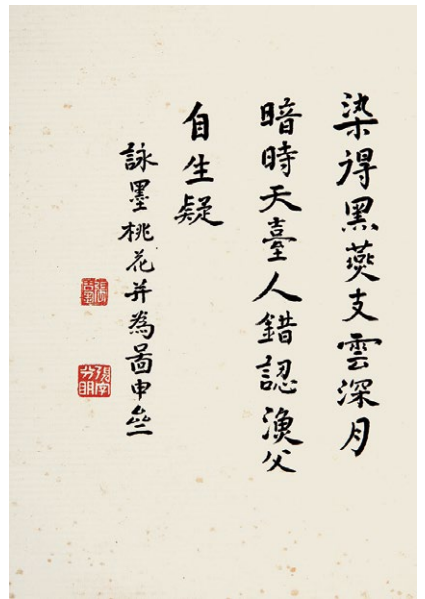 染得黑燕支雲深月
暗時天臺人錯認漁父
自生疑
詠墨桃花并為啚申